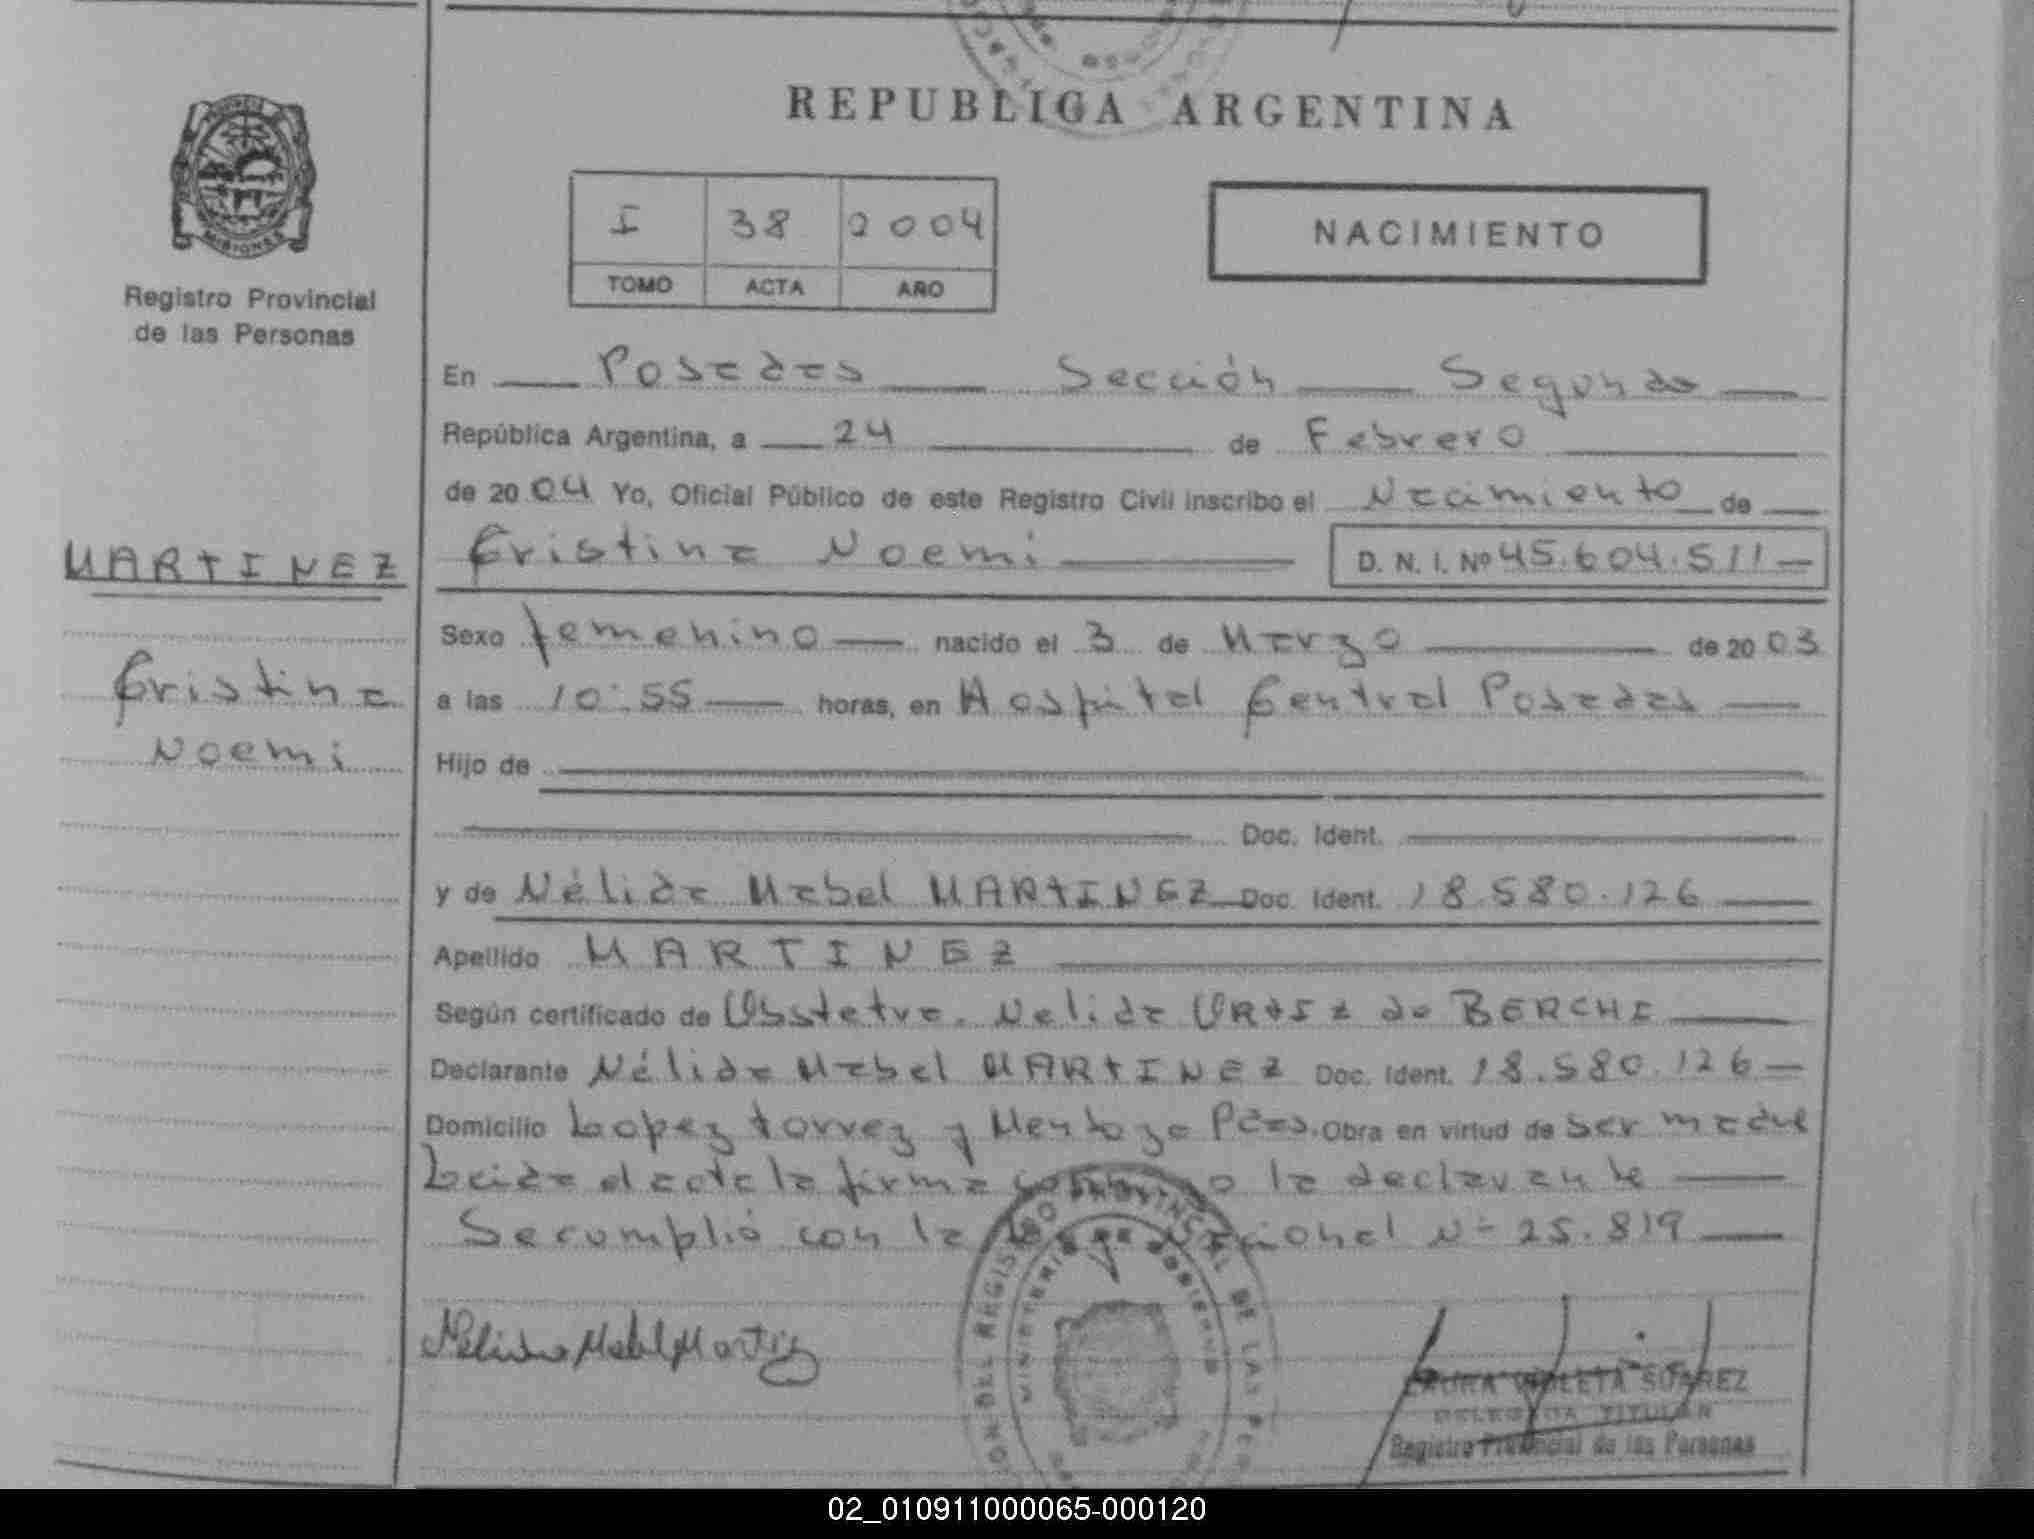 REPUBLICA ARGENTINA
MISIONES
Registro Provincial
de las Personas
I 38 2004
TOMO ACTA AÑO
NACIMIENTO
En Posadas Sección Segunda
República Argentina, a 24 de Febrero
de 2004 Yo, Oficial Público de este Registro Civil inscribo el Nacimiento de
MARTINEZ
Cristina Noemi D. N. I. Nº 45.604.511
Sexo femenino nacido el 3 de Marzo de 2003
Cristina
Noemi
a las 10:55 horas, en Hospital Central Posadas
Hijo de
Doc. Ident.
y de Nélida Mabel MARTINEZ Doc. Ident. 18.580.126
Apellido MARTINEZ
Según certificado de Obstetra. Nelida ORTIZ de BERCHI
Declarante Nélida Mabel MARTINEZ Doc. Ident. 18.580.126
Domicilio Lopez torrez y Mendoza Pdas. Obra en virtud de ser madre
Leida el acta la firma la declarante
Se cumplió con la Nacional Nº 25.819
Nelida Mabel Martinez
MINISTERIO DE GOBIERNO
PROVINCIAL DE LAS
LAURA VIOLETA SUAREZ
DELEGADA TITULAR
Registro Provincial de las Personas
02_010911000065-000120